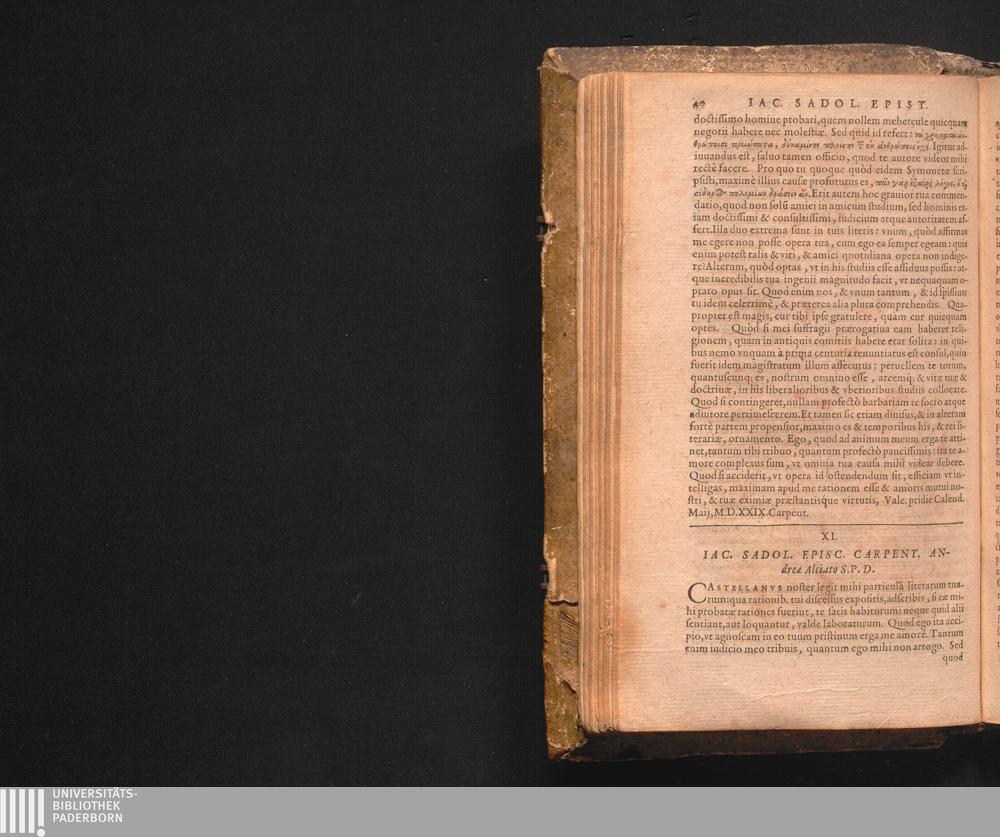 40 IAC. SADOL. EPIST.
doctissimo homine probari, quem nollem mehercule quicquam
negotii habere nec molestiæ. Sed quid id refert:
Igitur ad-
iuuandus est, saluo tamen officio, quod te autore videor mihi
rectè facere. Pro quo tu quoque quòd eidem Symonetæ scri-
psisti, maximè illius causæ profuturus es,
Erit autem hoc grauior tua commen-
datio, quod non solũ amici in amicum studium, sed hominis et-
iam doctissimi & consultissimi, iudicium atque autoritatem af-
fert. Illa duo extrema sunt in tuis literis: vnum, quòd affirmas
me egere non posse opera tua, cum ego ea semper egeam: quis
enim potest talis & viri, & amici quotidiana opera non indige-
re? Alterum, quòd optas, vt in his studiis esse assiduus possis: at-
que incredibilis tua ingenii magnitudo facit, vt nequaquam o-
ptato opus sit. Quod enim nos, & vnum tantum, & id spissius
tu idem celerrimè, & præterea alia plura comprehendis. Qua-
propter est magis, cur tibi ipse gratulere, quàm cur quicquam
optes. Quòd si mei suffragii prærogatiua eam haberet reli-
gionem, quam in antiquis comitiis habere erat solita: in qui-
bus nemo vnquam à prima centuria renuntiatus est consul, quin
fuerit idem magistratum illum assecutus: peruellem te totum,
quantuscunq; es, nostrum omnino esse, arcemq; & vitæ tuæ &
doctrinæ, in his liberalioribus & vberioribus studiis collocare.
Quod si contingeret, nullam profectò barbariam te socio atque
adiutore pertimescerem. Et tamen sic etiam diuisus, & in alteram
fortè partem propensior, maximo es & temporibus his, & rei li-
terariæ, ornamento. Ego, quod ad animum meum erga te atti-
net, tantum tibi tribuo, quantum profectò paucissimis: ita te a-
more complexus sum, vt omnia tua causa mihi videar debere.
Quod si acciderit, vt opera id ostendendum sit, efficiam vt in-
telligas, maximam apud me rationem esse & amoris mutui no-
stri, & tuæ eximiæ præstantisque virtutis, Vale. pridie Calend.
Maij, M.D.XXIX. Carpent.
XI.
IAC. SADOL. EPISC. CARPENT. AN-
dreæ Alciato S. P. D.
CASTELLANVS noster legit mihi particulã literarum tua-
rum: qua rationib. tui discessus expositis, adscribis, si eæ mi-
hi probatæ rationes fuerint, te satis habiturum: neque quid alii
sentiant, aut loquantur, valde laboraturum. Quod ego ita acci-
pio, vt agnoscam in eo tuum pristinum erga me amorẽ. Tantum
enim iudicio meo tribuis, quantum ego mihi non arrogo. Sed
quod
UNIVERSITÄTS-
BIBLIOTHEK
PADERBORN